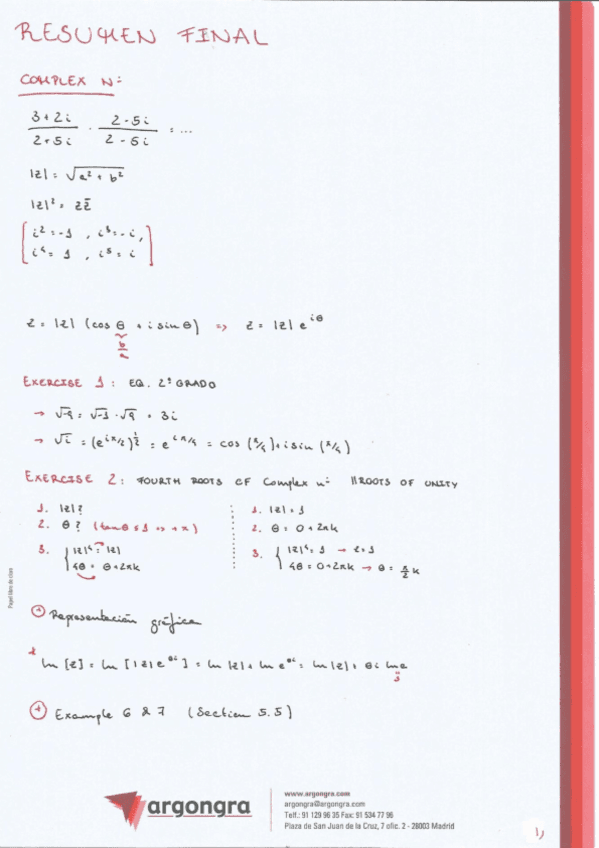 RESUMEN FINAL
COMPLEX Nº
3+2i / 2+5i · 2-5i / 2-5i = ...
|z| = √a²+b²
|z|² = z z̄
i²=-1 , i³=-i,
i⁴= 1 , i⁵= i
z = |z| (cos θ + i sin θ) => z = |z| e^iθ
b/a
EXERCISE 1: EQ. 2º GRADO
→ √-9 = √-1 · √9 = 3i
→ √i = (e^iπ/2)^1/2 = e^iπ/4 = cos (π/4)+i sin (π/4)
EXERCISE 2: FOURTH ROOTS OF Complex nº || ROOTS OF UNITY
1. |z|? 1. |z| = 1
2. θ? (tan θ ± 1 => +π) 2. θ = 0 + 2πk
3. |z|⁴ = |z| 3. |z|⁴ = 1 → z=1
4θ = θ+2πk 4θ = 0+2πk → θ = π/2 k
Representación gráfica
* ln [z] = ln [|z| e^θi] = ln |z| + ln e^θi = ln |z| + θi ln e
Example 6 & 7 (Section 5.5)
Papel libre de cloro
argongra
www.argongra.com
argongra@argongra.com
Telf.: 91 129 96 35 Fax: 91 534 77 96
Plaza de San Juan de la Cruz, 7 ofic. 2 - 28003 Madrid
1)